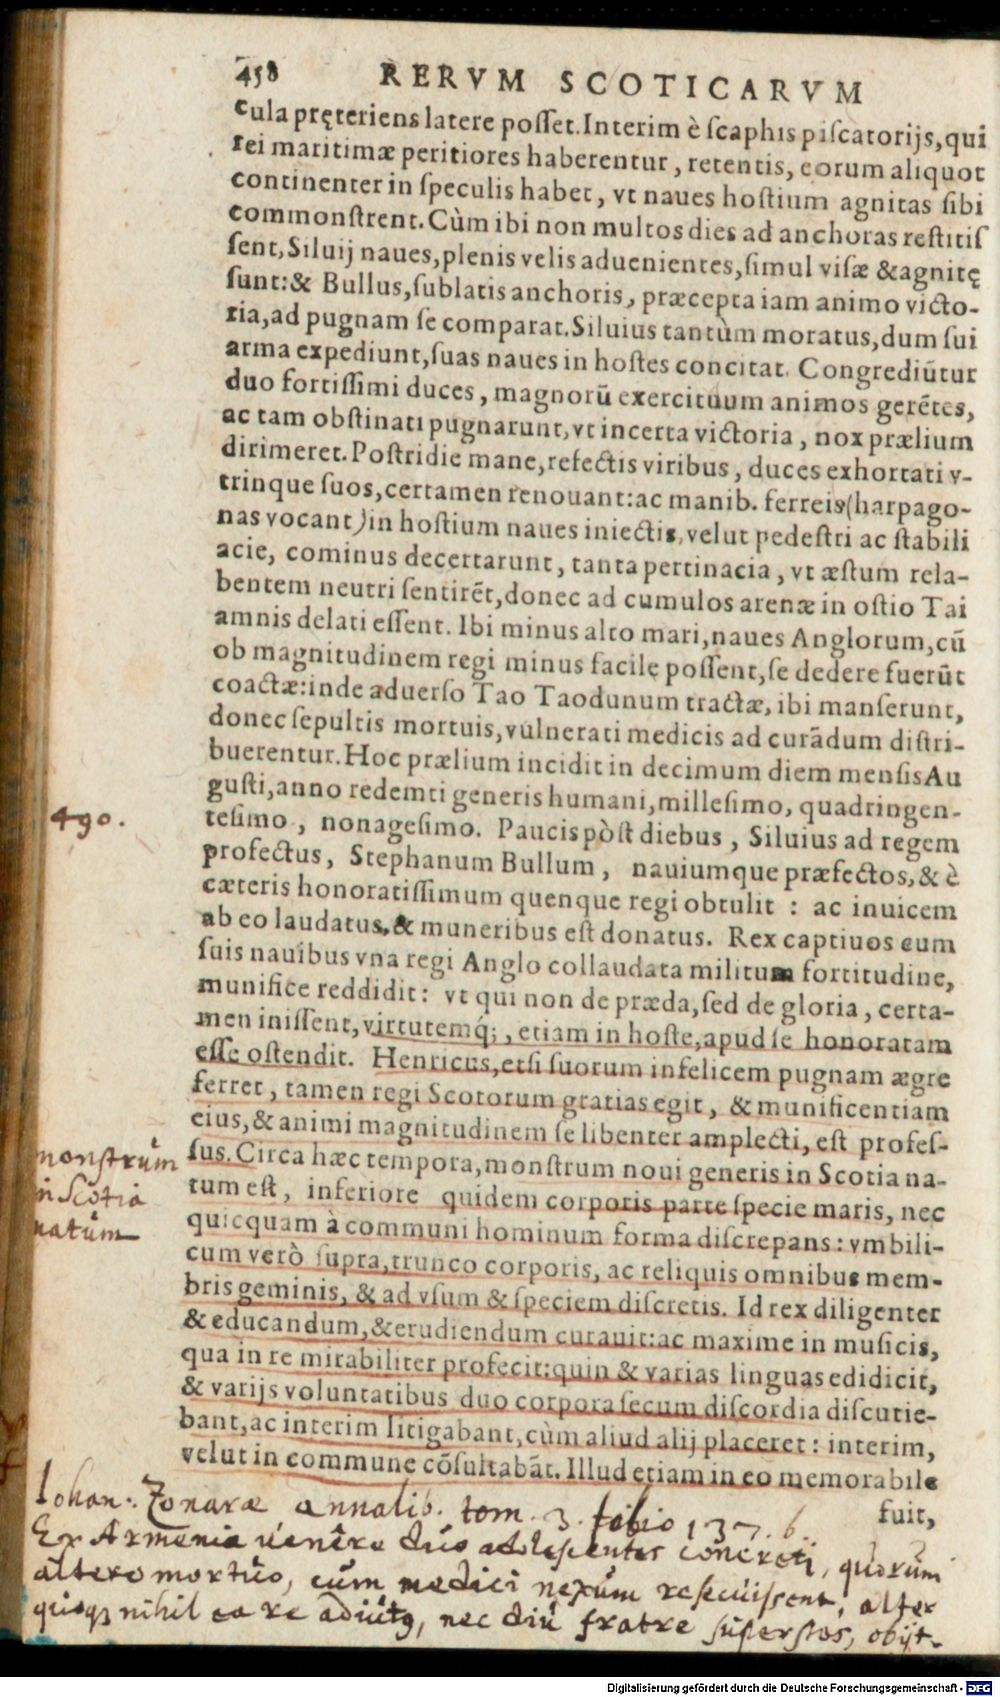 458 RERVM SCOTICARVM
cula pręteriens latere posset. Interim è scaphis piscatorijs, qui
rei maritimæ peritiores haberentur, retentis, eorum aliquot
continenter in speculis habet, vt naues hostium agnitas sibi
commonstrent. Cùm ibi non multos dies ad anchoras restitis
sent, Siluij naues, plenis velis aduenientes, simul visæ & agnitę
sunt: & Bullus, sublatis anchoris, præcepta iam animo victo-
ria, ad pugnam se comparat. Siluius tantùm moratus, dum sui
arma expediunt, suas naues in hostes concitat. Congrediũtur
duo fortissimi duces, magnorũ exercituum animos gerẽtes,
ac tam obstinati pugnarunt, vt incerta victoria, nox prælium
dirimeret. Postridie mane, refectis viribus, duces exhortati v-
trinque suos, certamen renouant: ac manib. ferreis (harpago-
nas vocant) in hostium naues iniectis, velut pedestri ac stabili
acie, cominus decertarunt, tanta pertinacia, vt æstum rela-
bentem neutri sentirẽt, donec ad cumulos arenæ in ostio Tai
amnis delati essent. Ibi minus alto mari, naues Anglorum, cũ
ob magnitudinem regi minus facilę possent, se dedere fuerũt
coactæ: inde aduerso Tao Taodunum tractæ, ibi manserunt,
donec sepultis mortuis, vulnerati medicis ad curãdum distri-
buerentur. Hoc prælium incidit in decimum diem mensis Au
gusti, anno redemti generis humani, millesimo, quadringen-
490.
tesimo, nonagesimo. Paucis pòst diebus, Siluius ad regem
profectus, Stephanum Bullum, nauiumque præfectos, & è
cæteris honoratissimum quenque regi obtulit : ac inuicem
ab eo laudatus, & muneribus est donatus. Rex captiuos cum
suis nauibus vna regi Anglo collaudata militum fortitudine,
munifice reddidit: vt qui non de præda, sed de gloria, certa-
men inissent, virtutemq;, etiam in hoste, apud se honoratam
esse ostendit. Henricus, etsi suorum infelicem pugnam ægre
ferret, tamen regi Scotorum gratias egit, & munificentiam
eius, & animi magnitudinem se libenter amplecti, est profes-
monstrum
in Scotia
natum
sus. Circa hæc tempora, monstrum noui generis in Scotia na-
tum est, inferiore quidem corporis parte specie maris, nec
quicquam à communi hominum forma discrepans: vmbili-
cum verò supra, trunco corporis, ac reliquis omnibus mem-
bris geminis, & ad vsum & speciem discretis. Id rex diligenter
& educandum, & erudiendum curauit: ac maxime in musicis,
qua in re mirabiliter profecit: quin & varias linguas edidicit,
& varijs voluntatibus duo corpora secum discordia discutie-
bant, ac interim litigabant, cùm aliud alij placeret: interim,
velut in commune cõsultabãt. Illud etiam in eo memorabile
fuit,
Iohan. Zonaræ annalib. tom. 3. folio 137. b.
Ex Armenia uenêre duo adolescentes concreti, quorum
altero mortuo, cum medici nexum resecuissent, alter
quoq; nihil ea re adiutus, nec diu fratre superstes, obijt.
Digitalisierung gefördert durch die Deutsche Forschungsgemeinschaft - DFG